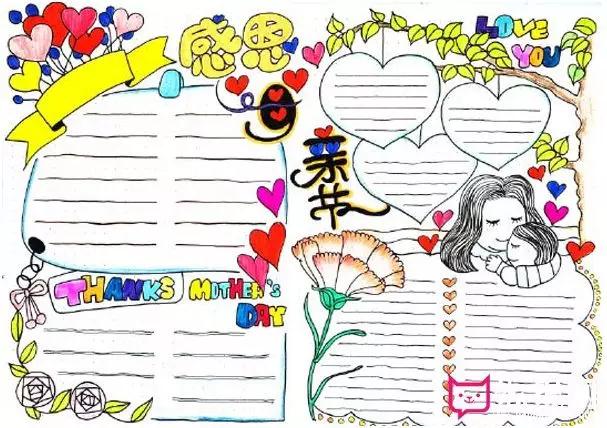 感恩
母
亲
节
LOVE
YOU
THANKS
MOTHER'S
DAY